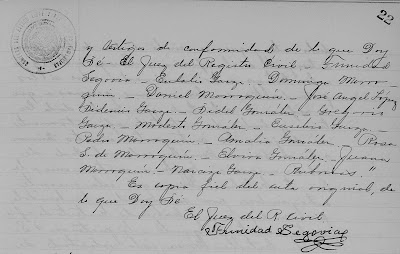 22
y testigos de conformidad de lo que Doy
Fé - El Juez del Registro Civil - Trinidad
Segovia - Eulalio Garza - Domingo Marro-
quin - Daniel Marroquin. - José Angel López
Garza - Fidel González - Gregorio
Garza - Modesto González - Eusebio Garza -
Pedro Marroquin. - Amalia González Rosa
S. de Marroquin. - Elvira González - Juana
Marroquin - Narcizo Garza - Rubricas."
Es copia fiel del acta original, de
lo que Doy Fé
El Juez del R. Civil.
Trinidad Segovia